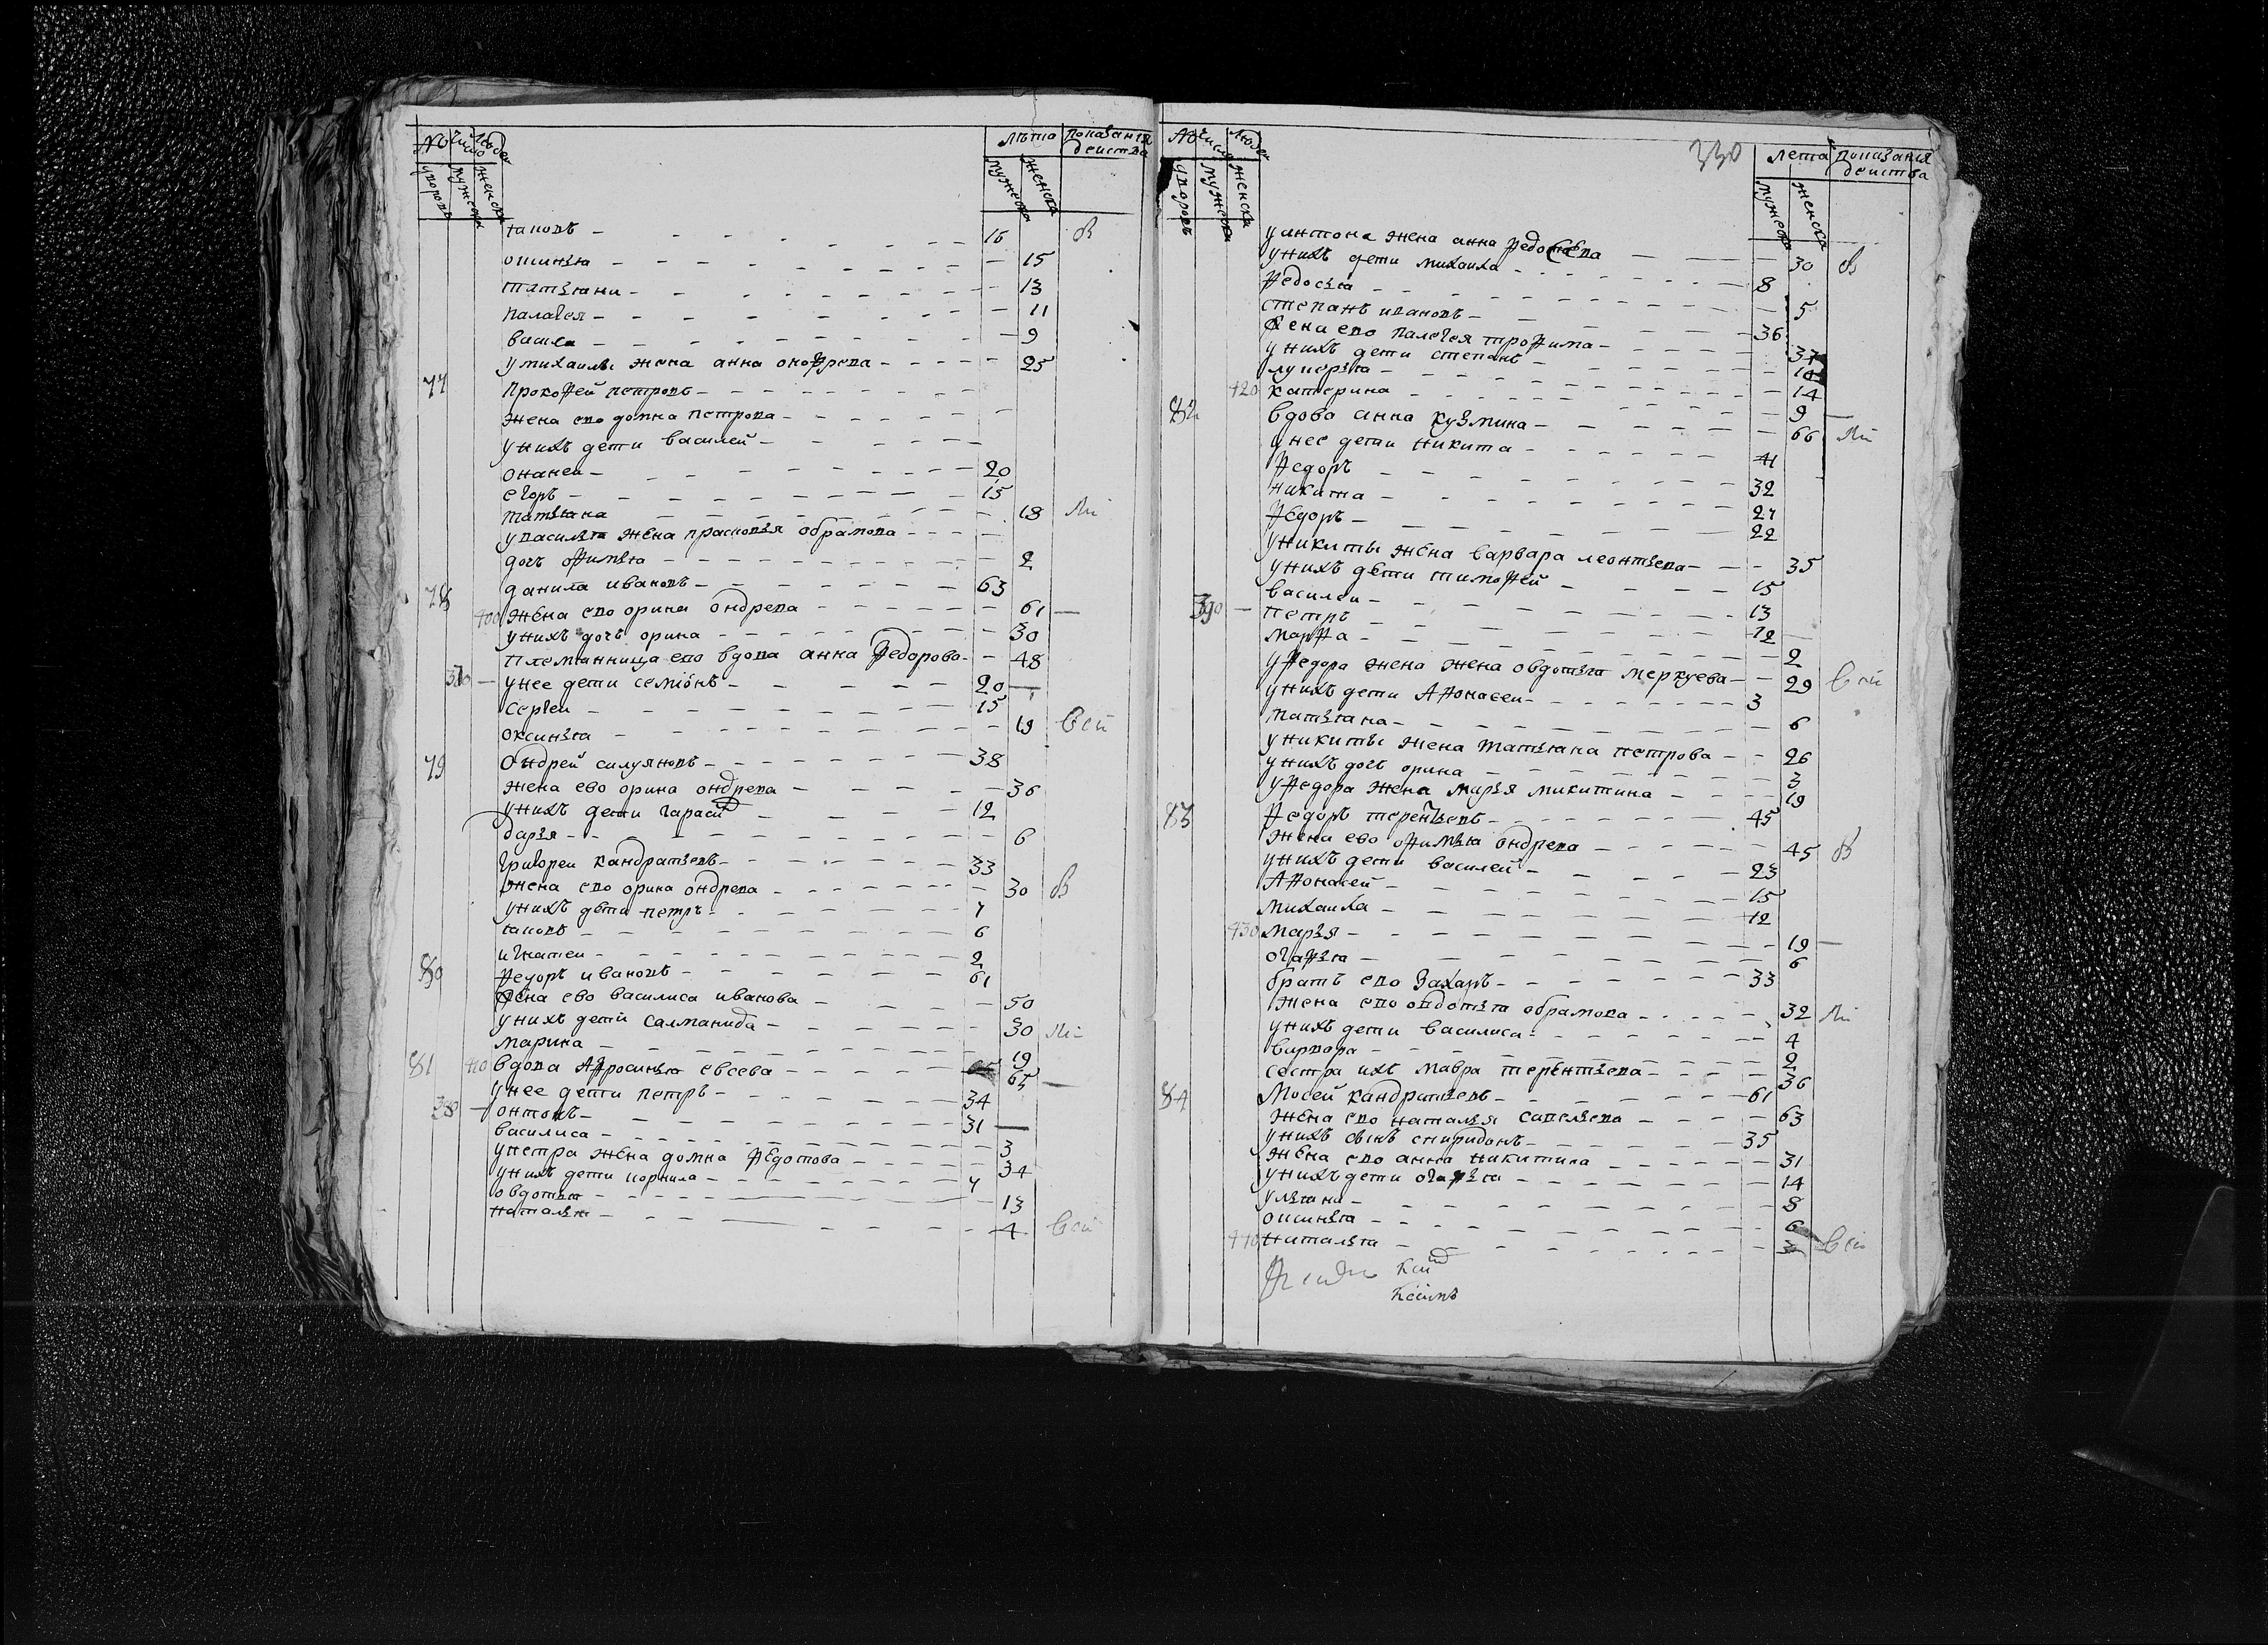 № число людей лѣта показания
действа
дворовъ мужеска женска мужеска женска
іаковъ 16
оксинья 15
татьяна 13
палагея 11
васса 9
у михаилы жена анна онофрева 25
77 прокофей петровъ
жена ево домна петрова
у нихъ дети василей
онаней 20
егоръ 15
татьяна 18
у василья жена прасковья обрамова
дочь офимья 2
78 данила ивановъ 63
400 жена ево орина ондрева 61
у нихъ дочь орина 30
племянница ево вдова анна федорова 48
370 у нее дети семіонъ 20
сергеи 15
оксинья 19
79 ондрей силуяновъ 38
жена ево орина ондрева 36
у нихъ дети гарасим 12
дарья 6
григореи кандратьевъ 33
жена ево орина ондрева 30
у нихъ дети петръ 7
іаковъ 6
игнатеи 2
80 федоръ ивановъ 61
жена ево василиса иванова 50
у нихъ дети салманида 30
марина 19
81 410 вдова афросинья евсева 65
у нее дети петръ 34
380 онтонъ 31
василиса 3
у петра жена домна федотова 34
у нихъ дети корнила 7
овдотья 13
наталья 4
330
№ число людей лета показания
действа
дворовъ мужеска женска мужеска женска
у онтона жена анна федосеева 30
у нихъ дети михаила 8
федосья 5
степанъ ивановъ 36
жена ево палагея трофима 37
у нихъ дети степанъ
лукерья 14
420 катерина 9
82 вдова анна кузмина 66
у нее дети никита 41
федоръ 32
никита 27
федоръ 22
у никиты жена варвара леонтьева 35
у нихъ дети тимофей 15
василеи 13
390 петръ 12
марфа 2
у федора жена жена овдотья меркуева 29
у нихъ дети афонасеи 3
татьяна 6
у никиты жена татьяна петрова 26
у нихъ дочь орина 3
у федора жена марья микитина 19
83 федоръ терентьевъ 45
жена ево офимья ондрева 45
у нихъ дети василей 23
афонасей 15
михаила 12
430 марья 19
огафья 6
братъ ево захаръ 33
жена ево овдотья обрамова 32
у нихъ дети василиса 4
варвара 2
сестра ихъ мавра терентьева 36
84 мосей кандратьевъ 61
жена ево наталья савельева 63
у нихъ сынъ спиридонъ 35
жена ево анна никитина 31
у нихъ дети огафья 14
ульяна 8
оксинья 6
440 наталья 3